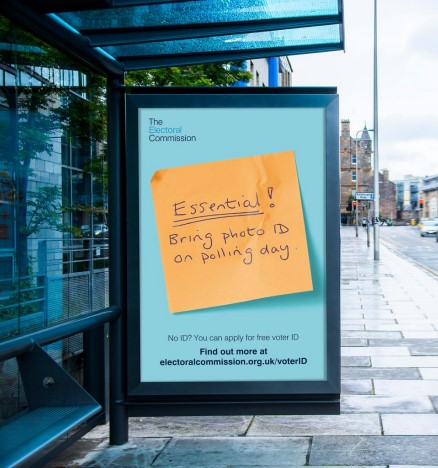 The
Electoral
Commission
Essential!
Bring photo ID
on polling day.
No ID? You can apply for free voter ID
Find out more at
electoralcommission.org.uk/voterID